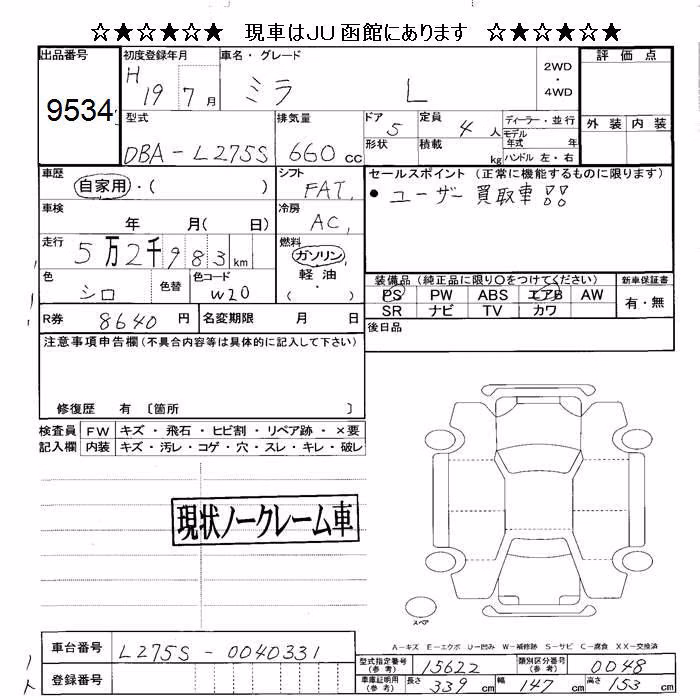 ☆★☆★☆★ 現車はJU函館にあります ☆★☆★☆★
出品番号 初度登録年月 車名・グレード 2WD ・ 4WD 評価点
9534 H 19 7月 ミラ L
型式 排気量 ドア 5 定員 4人 ディーラー・並行 外装 内装
DBA-L275S 660cc 形状 積載 kg モデル年式 年 ハンドル 左・右
車歴 自家用・( ) シフト FAT セールスポイント(正常に機能するものに限ります)
車検 年 月( 日) 冷房 AC ●ユーザー買取車!!
走行 5万2千983km 燃料 ガソリン・軽油・( )
色 シロ 色替 色コード W20 装備品(純正品に限り○をつけてください) 新車保証書
PS PW ABS エアB AW 有・無
SR ナビ TV カワ
R券 8640円 名変期限 月 日 後日品
注意事項申告欄(不具合内容等は具体的に記入して下さい)
修復歴 有 〔箇所 〕
検査員 FW キズ・飛石・ヒビ割・リペア跡・×要
記入欄 内装 キズ・汚レ・コゲ・穴・スレ・キレ・破レ
現状ノークレーム車
スペア
A-キズ E-エクボ U-凹み W-補修跡 S-サビ C-腐食 XX-交換済
車台番号 L275S-0040331
型式指定番号(参考) 15622 類別区分番号(参考) 0048
登録番号 車庫証明用(参考) 長さ 339cm 幅 147cm 高さ 153cm